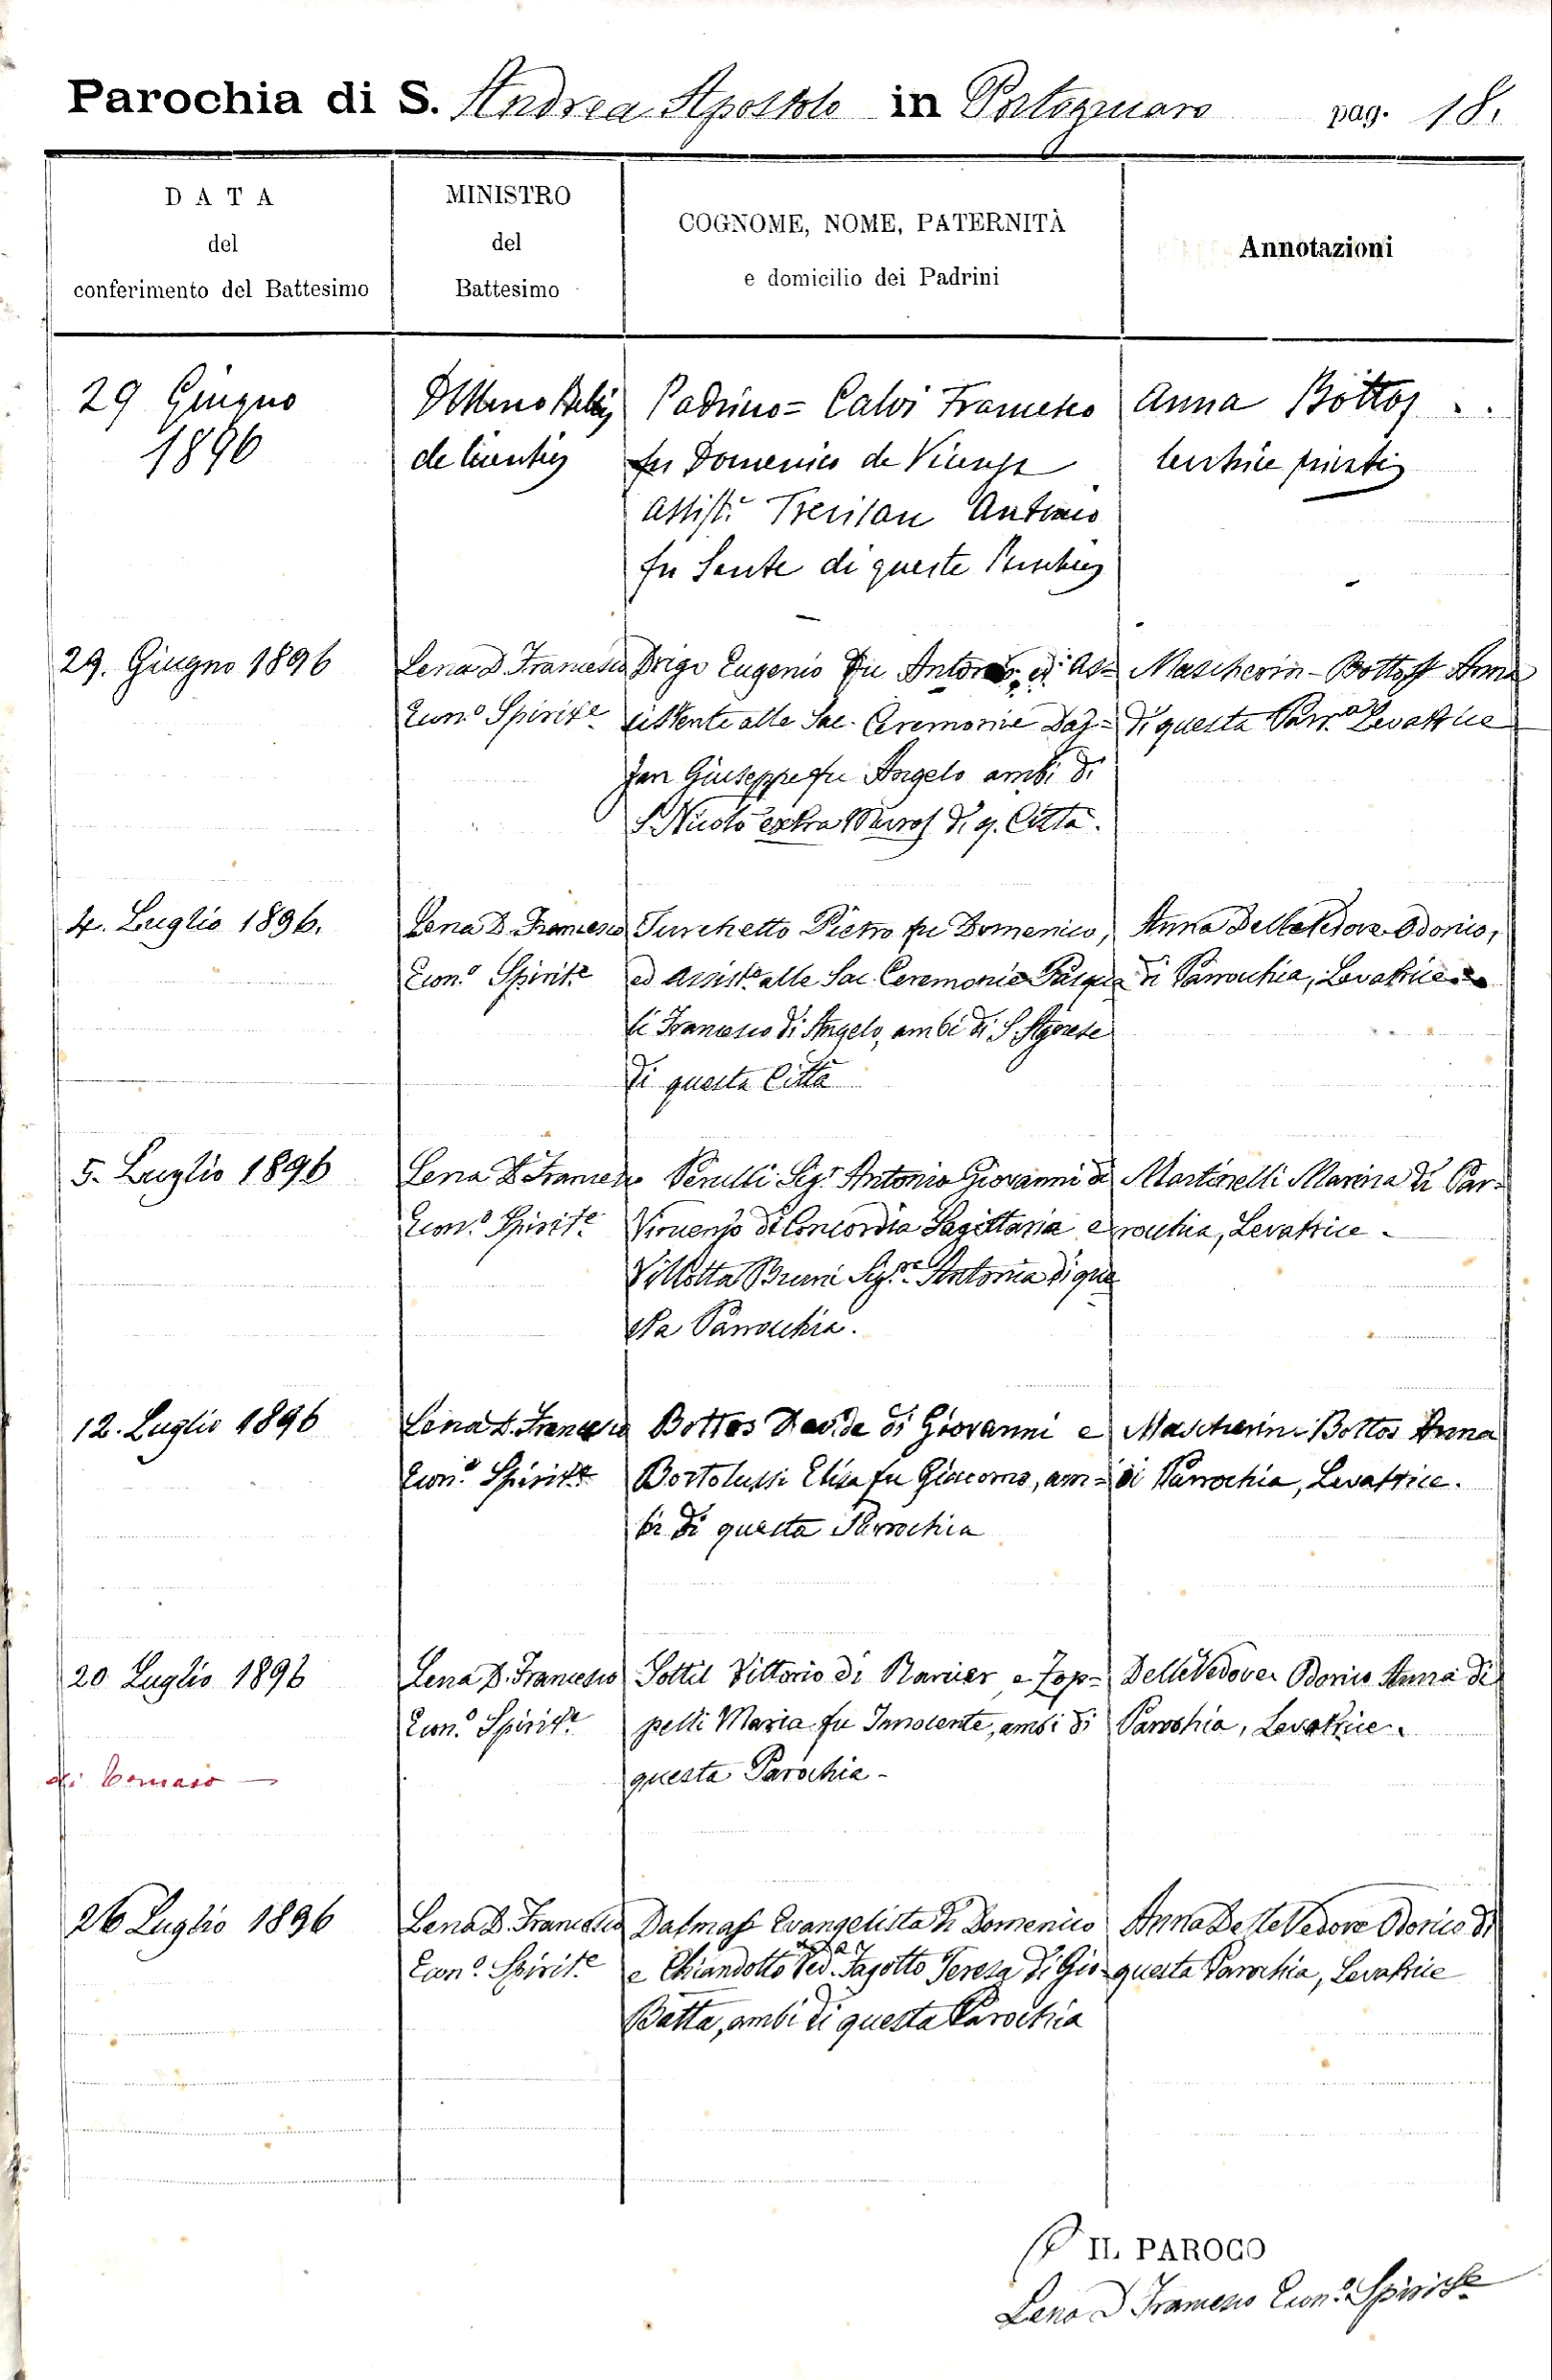 Parochia di S. Andrea Apostolo in Portogruaro pag. 18.
DATA
del
conferimento del Battesimo
MINISTRO
del
Battesimo
COGNOME, NOME, PATERNITÀ
e domicilio dei Padrini
Annotazioni
29 Giugno
1896
de licentia
Padrino = Calvi Francesco
fu Domenico de Vicenza
Assist.e Trevisan Antonio
fu Sante di questa
Anna Bottos
29. Giugno 1896
Lena D. Francesco
Econ.o Spirit.e
Drigo Eugenio fu Antonio, ed As=
sistente alle Sac. Ceremonie Daz=
zan Giuseppe fu Angelo ambi di
S. Nicolò extra Muros di q. Città.
Mascherin-Bottos Anna
di questa Parr.a Levatrice
4. Luglio 1896.
Lena D. Francesco
Econ.o Spirit.e
Turchetto Pietro fu Domenico,
ed Assist.e alle Sac. Ceremonie Pasqua
li Francesco di Angelo, ambi di S. Agnese
di questa Città
Anna Delle Vedove Odorico,
di Parrochia, Levatrice
5. Luglio 1896
Lena D. Francesco
Econ.o Spirit.e
Perulli Sig.r Antonio Giovanni di
Vincenzo di Concordia Sagittaria e
Villotta Bruni Sig.ra Antonia di que
sta Parrochia.
Martinelli Marina di Par=
rochia, Levatrice.
12. Luglio 1896
Lena D. Francesco
Econ.o Spirit.e
Bottos Davide di Giovanni e
Bortolussi Elisa fu Giacomo, am=
bi di questa Parrochia
Mascherin-Bottos Anna
di Parrochia, Levatrice.
20 Luglio 1896
di Tomaso —
Lena D. Francesco
Econ.o Spirit.e
Sottil Vittorio di e Zop=
pelli Maria fu Innocente, ambi di
questa Parochia -
Delle Vedove Odorico Anna di
Parochia, Levatrice.
26 Luglio 1896
Lena D. Francesco
Econ.o Spirit.e
Dalmas Evangelista di Domenico
e Chiandotto Ved.a Fagotto Teresa di Gio
Batta, ambi di questa Parochia
Anna Delle Vedove Odorico di
questa Parochia, Levatrice
IL PAROCO
Lena D Francesco Econ.o Spirit.e